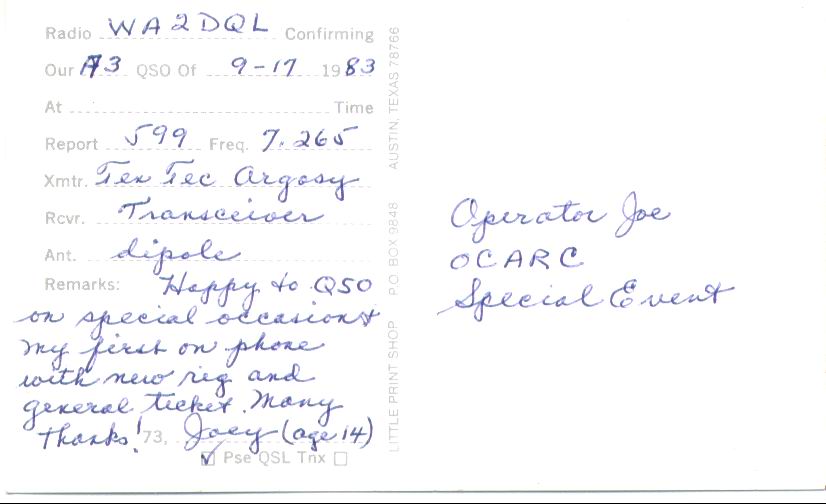 Radio WA2DQL Confirming
Our A3 QSO Of 9-17 1983
At Time
Report 599 Freq. 7.265
Xmtr. Ten Tec Argosy
Rcvr. Transceiver
Ant. dipole
Remarks: Happy to QSO
on special occasion &
my first on phone
with new rig and
general ticket. Many
thanks! 73, Joey (age 14)
☑ Pse QSL Tnx ☐
LITTLE PRINT SHOP P.O. BOX 9848 AUSTIN, TEXAS 78766
Operator Joe
OCARC
Special Event